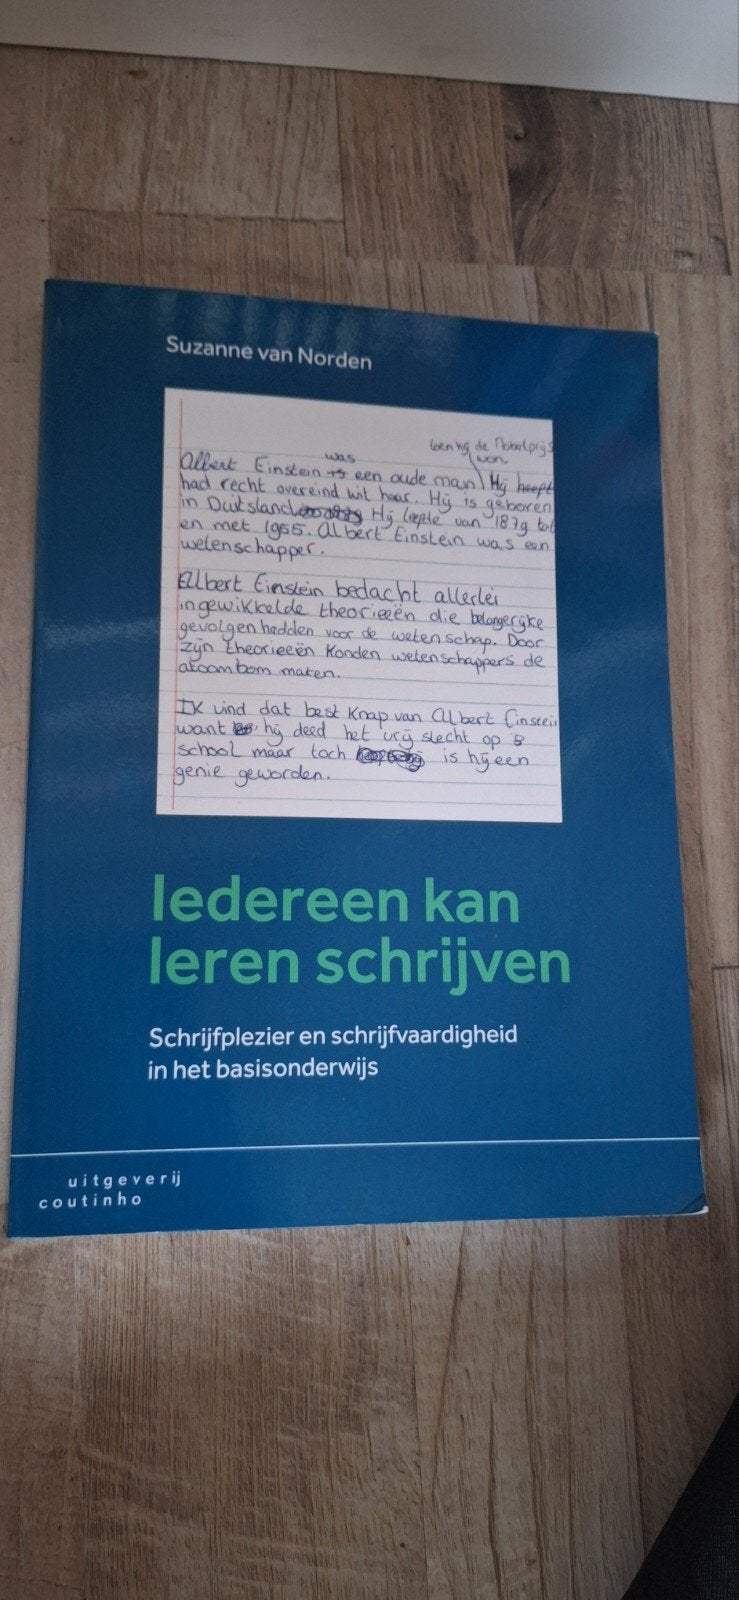 Suzanne van Norden
toen hij de Nobelprijs
was won.
Albert Einstein is een oude man Hij heeft
had recht overeind wit haar. Hij is geboren
in Duitsland Hij leefde van 1879 tot
en met 1955. Albert Einstein was een
wetenschapper.
Albert Einstein bedacht allerlei
ingewikkelde theorieeën die belangerijke
gevolgen hadden voor de wetenschap. Door
zijn theorieeën konden wetenschappers de
atoombom maken.
Ik vind dat best knap van Albert Einstein
want hij deed het vrij slecht op
school maar toch is hij een
genie geworden.
Iedereen kan
leren schrijven
Schrijfplezier en schrijfvaardigheid
in het basisonderwijs
uitgeverij
coutinho